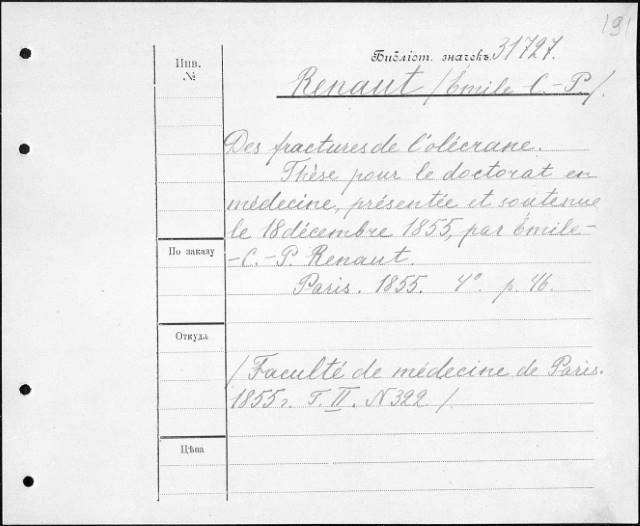 19
Инв.
№
Библіот. значекъ 31727.
Renaut /Émile C.-P./.
Des fractures de l'olécrane.
Thèse pour le doctorat en
médecine, présentée et soutenue
le 18 décembre 1855, par Émile-
-C.-P. Renaut.
Paris. 1855. 4° p. 46.
По заказу
Откуда
/Faculté de médecine de Paris.
1855 г. T. II. N 322 /.
Цѣна